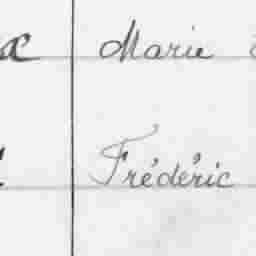 Marie
Frédéric